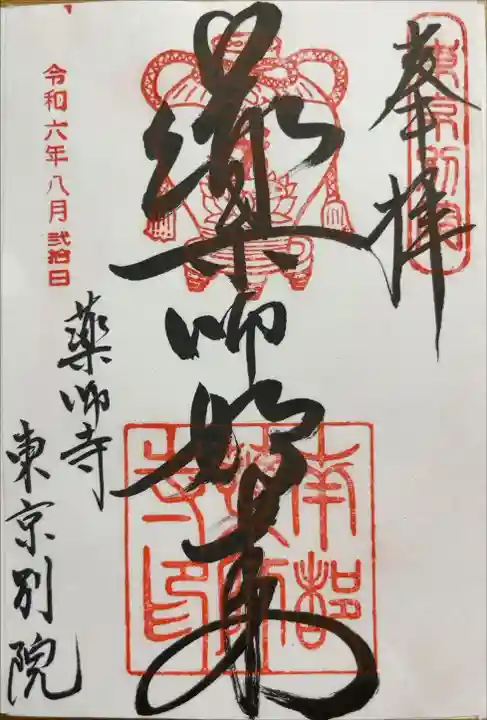 東京別院
奉拝
薬師如来
南都
薬師
寺印
令和六年八月弐拾日
薬師寺
東京別院